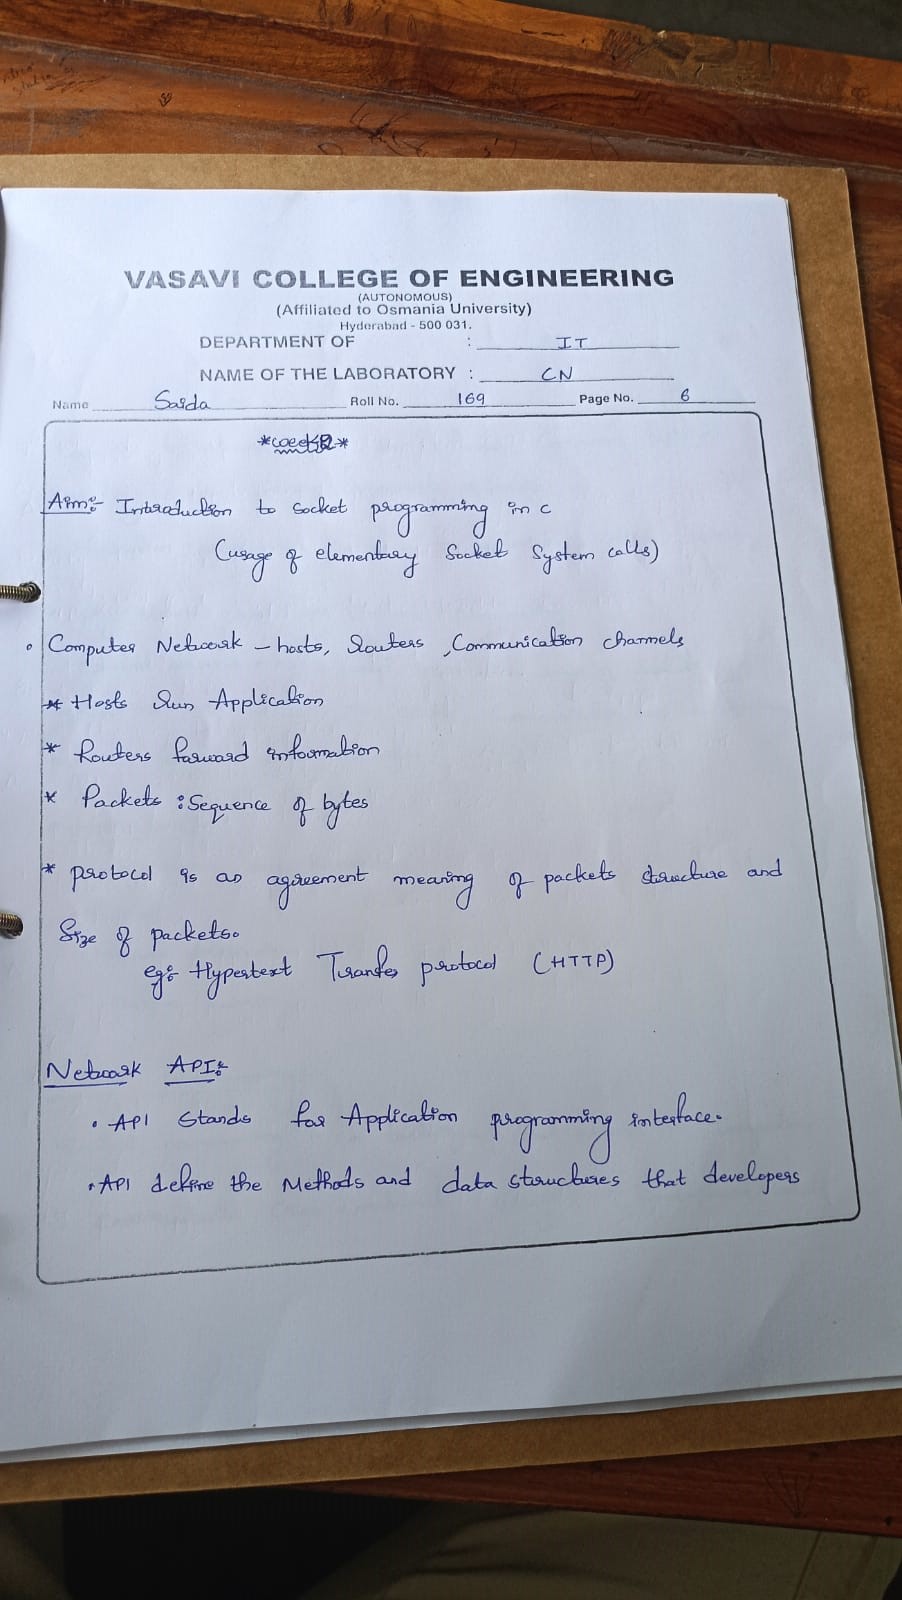 VASAVI COLLEGE OF ENGINEERING
(AUTONOMOUS)
(Affiliated to Osmania University)
Hyderabad - 500 031.
DEPARTMENT OF : IT
NAME OF THE LABORATORY : CN
Name Saida Roll No. 169 Page No. 6
*week2*
Aim:- Introduction to socket programming in c
(usage of elementary Socket System calls)
• Computer Network – hosts, Routers, Communication channels
* Hosts Run Application
* Routers forward information
* Packets : Sequence of bytes
* protocol is an agreement meaning of packets structure and
Size of packets.
eg:- Hypertext Transfer protocol (HTTP)
Network API:-
• API Stands for Application programming interface.
• API define the Methods and data structures that developers